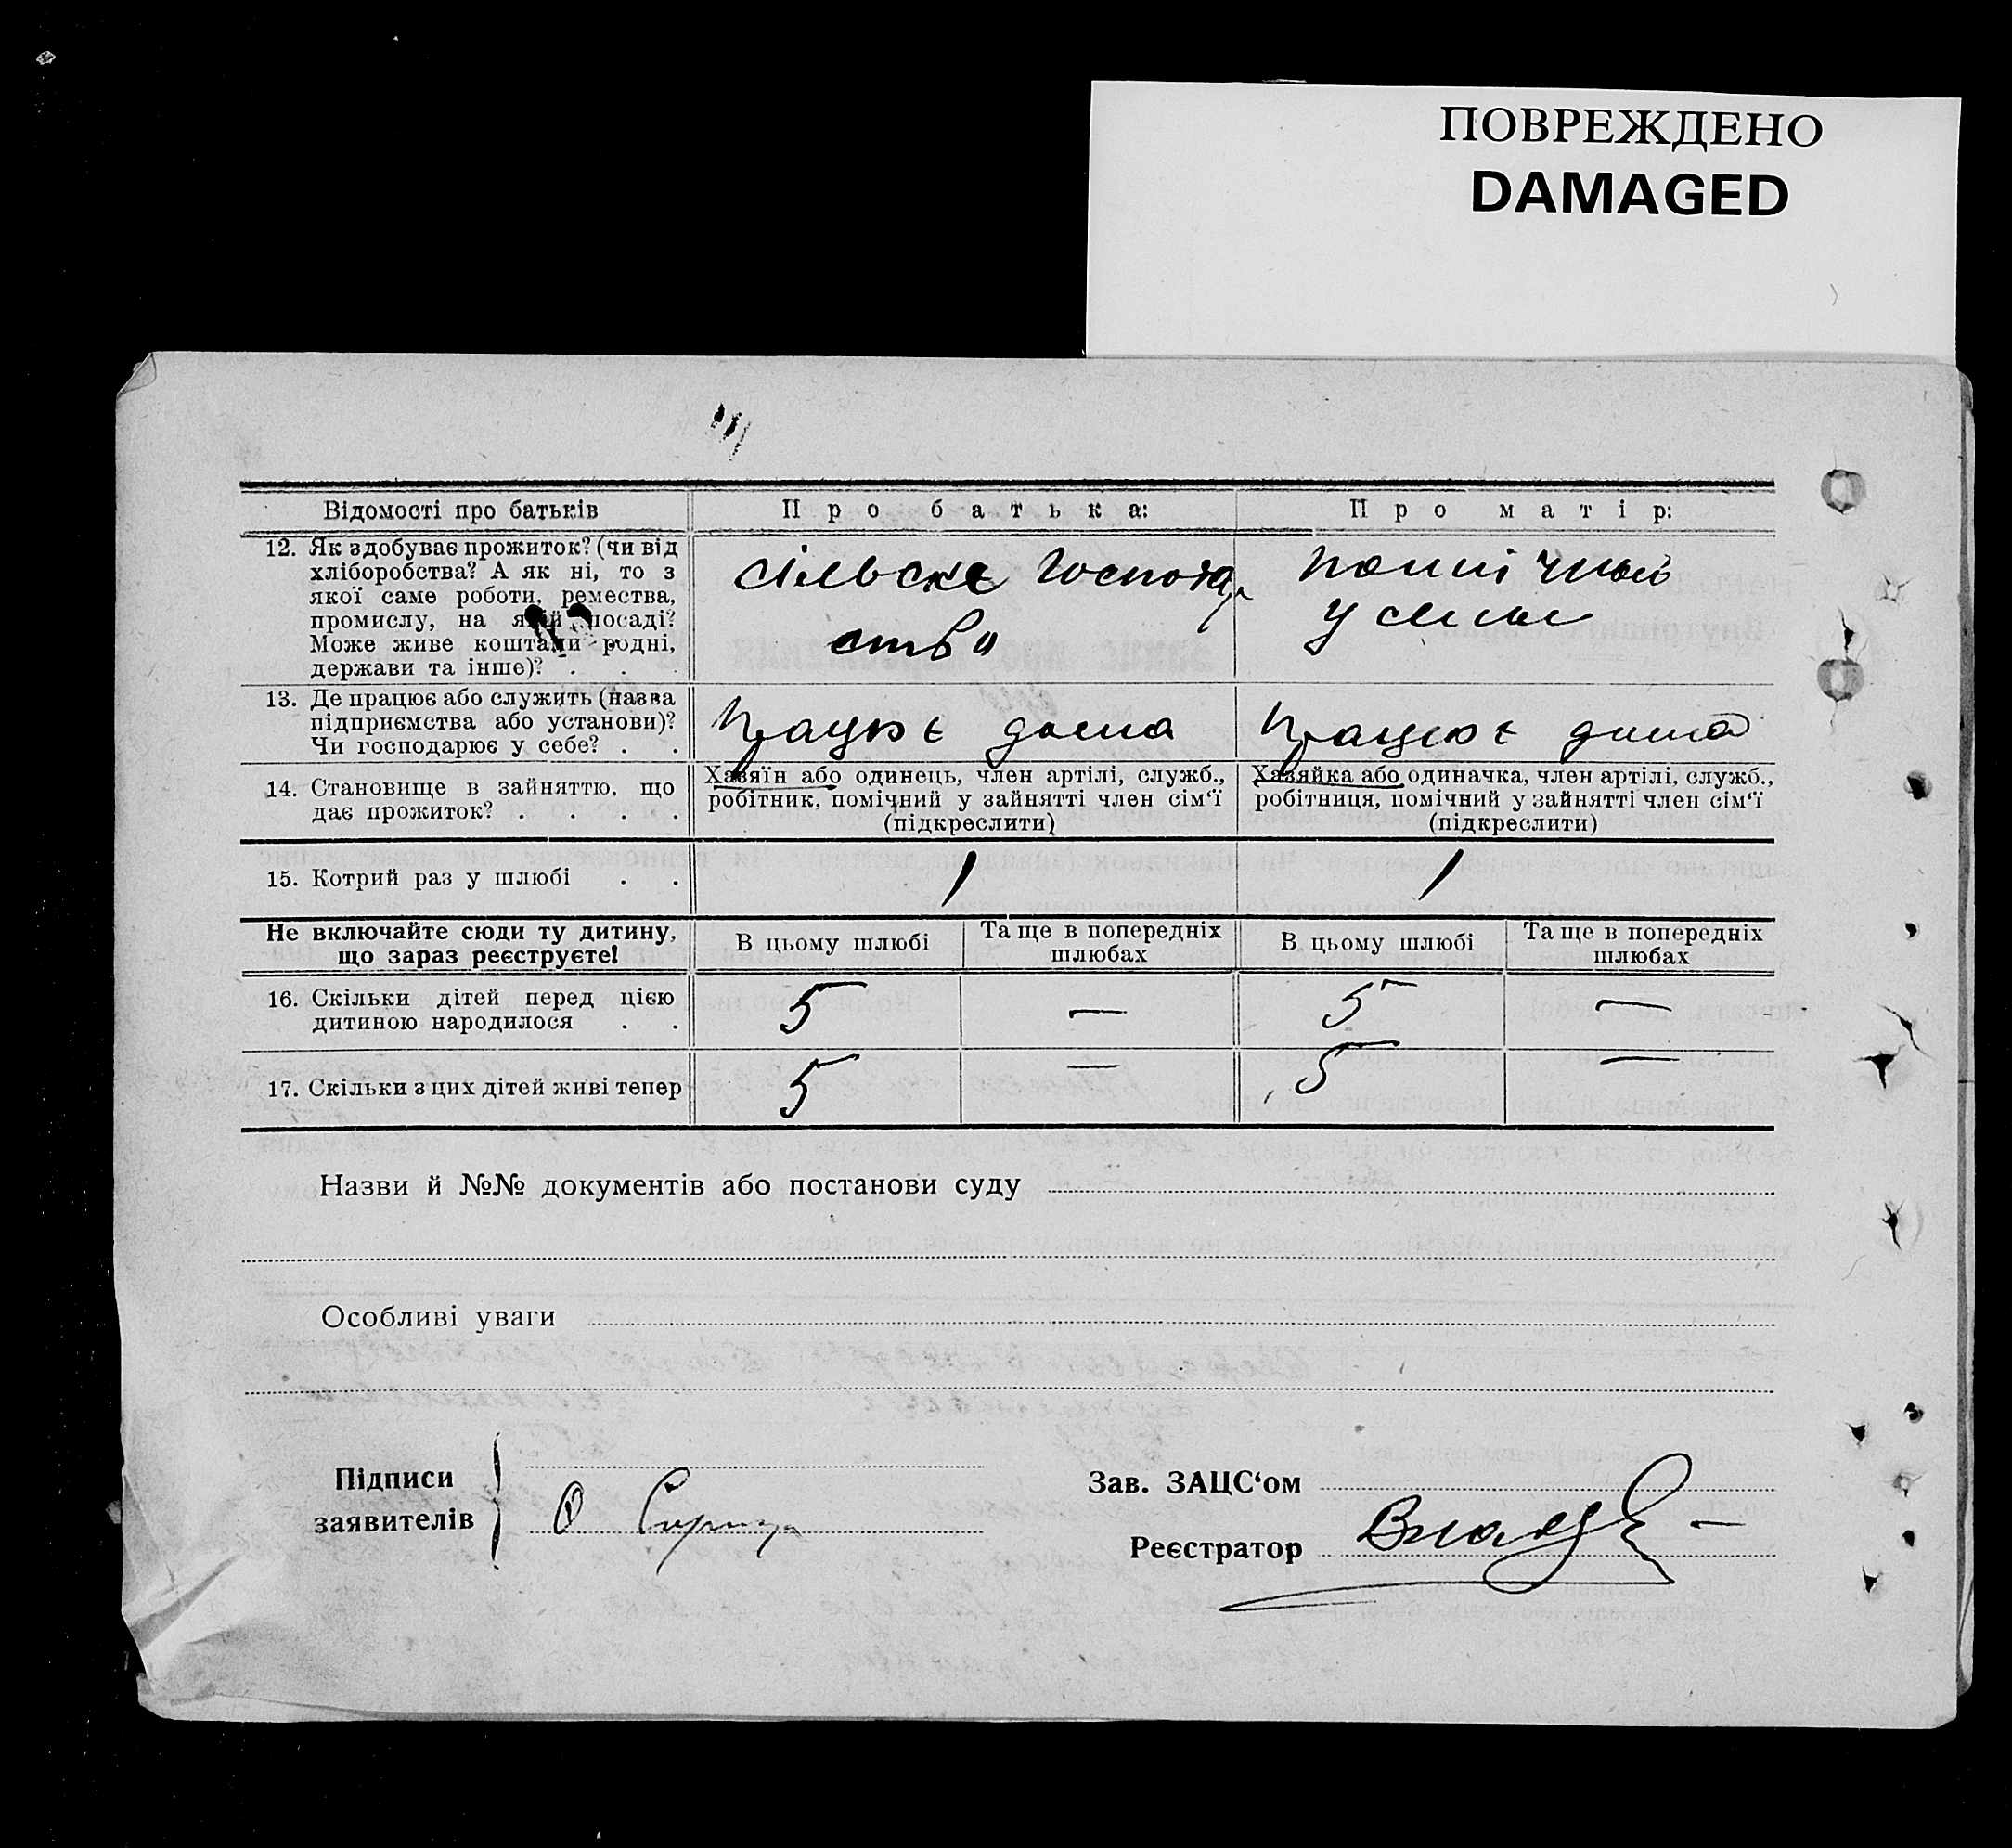 ПОВРЕЖДЕНО
DAMAGED
Відомості про батьків
Про батька:
Про матір:
12. Як здобуває прожиток? (чи від
хліборобства? А як ні, то з
якої саме роботи, ремества,
промислу, на якій посаді?
Може живе коштами родні,
держави та інше)? .
сільске господар
ства
помічний
у сімьи
13. Де працює або служить (назва
підприємства або установи)?
Чи господарює у себе? . .
Працює дома
Працює дома
14. Становище в зайняттю, що
дає прожиток? . . . .
Хазяїн або одинець, член артілі, служб.,
робітник, помічний у зайнятті член сім‘ї
(підкреслити)
Хазяйка або одиначка, член артілі, служб.,
робітниця, помічний у зайнятті член сім‘ї
(підкреслити)
15. Котрий раз у шлюбі . .
1
1
Не включайте сюди ту дитину,
що зараз реєструєте!
В цьому шлюбі
Та ще в попередніх
шлюбах
В цьому шлюбі
Та ще в попередніх
шлюбах
16. Скільки дітей перед цією
дитиною народилося . .
5
—
5
—
17. Скільки з цих дітей живі тепер
5
—
5
—
Назви й №№ документів або постанови суду
Особливі уваги
Підписи
заявителів
Зав. ЗАЦС‘ом
Реєстратор